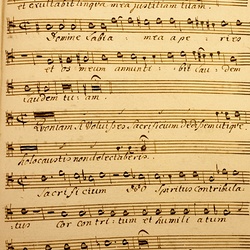 et exultabit lingua mea justitiam tuam.
Domine Labia mea aperi
et os meum annunti bit lau dem
laudem tu am.
Quoniam si voluisses Sacrificium Dedissem utique
holocaustis non delectaberis.
Sacrifi cium DEO Spiritus contribula
tus Cor contri tum et humili atum